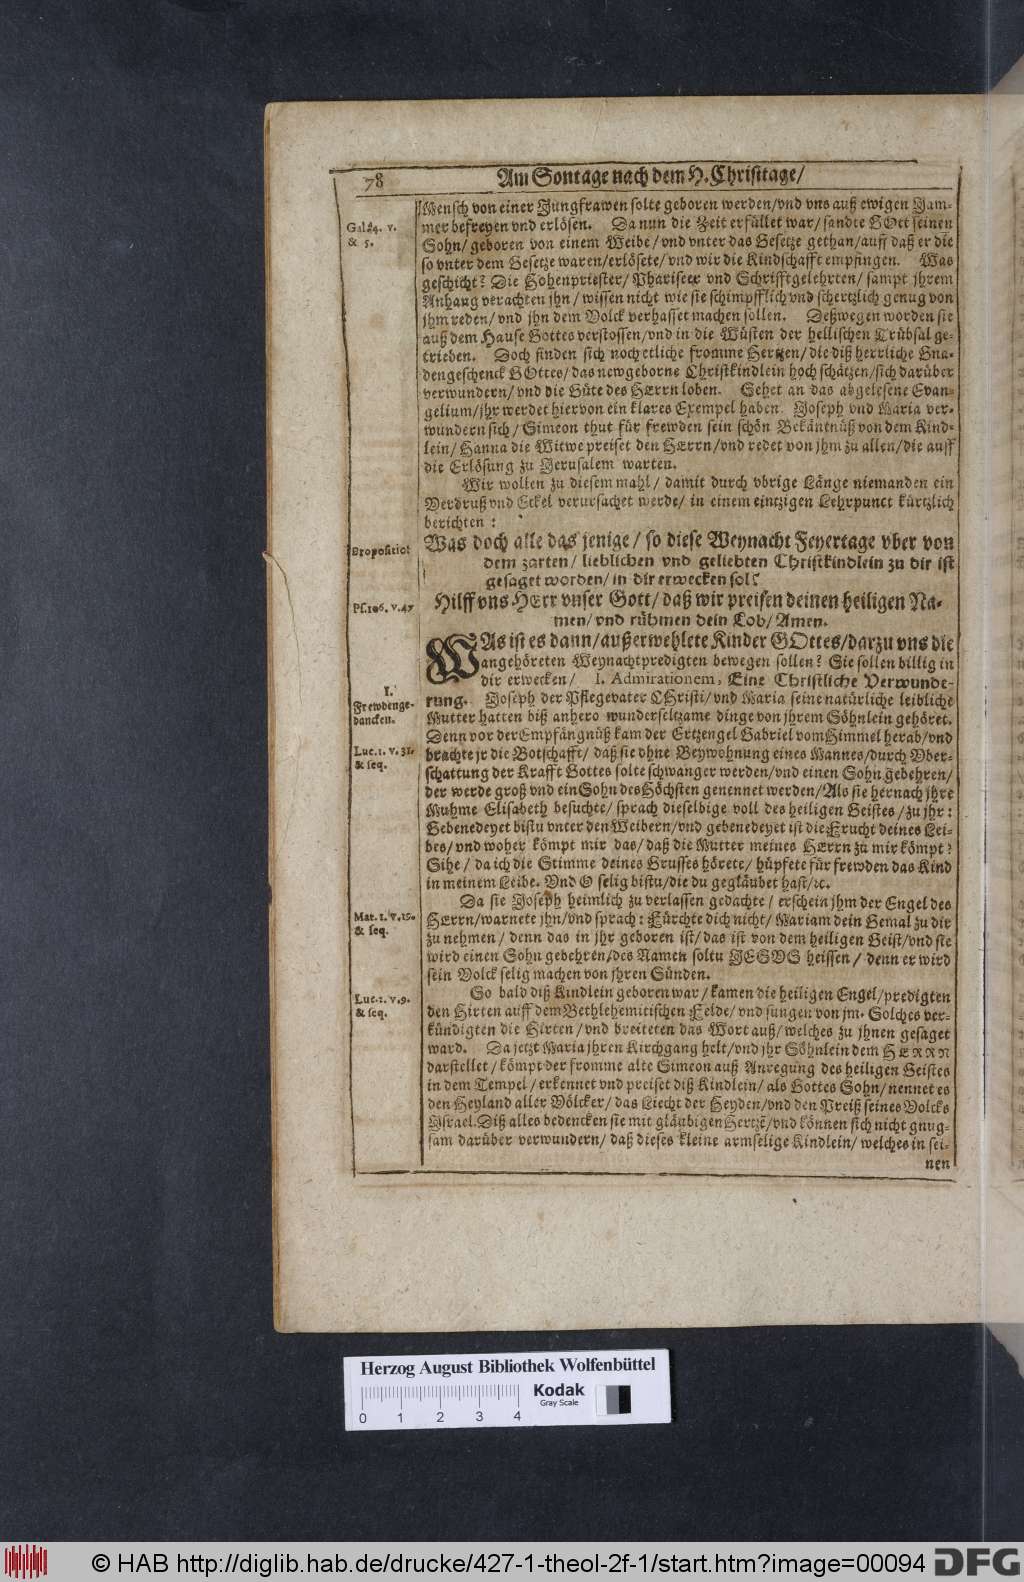 78
Am Sontage nach dem H. Christtage/
Mensch von einer Jungfrawen solte geboren werden/vnd vns auß ewigen Jam-
Gal. 4. v.
& 5.
mer befreyen vnd erlösen. Da nun die Zeit erfüllet war/ sandte GOtt seinen
Sohn/ geboren von einem Weibe/ vnd vnter das Gesetze gethan/ auff daß er die
so vnter dem Gesetze waren/erlösete/vnd wir die Kindschafft empfingen. Was
geschicht? Die Hohenpriester/ Phariseer vnd Schrifftgelehrten/ sampt jhrem
Anhang verachten jhn/ wissen nicht wie sie schimpfflich vnd schertzlich genug von
jhm reden/ vnd jhn dem Volck verhasset machen sollen. Deßwegen worden sie
auß dem Hause Gottes verstossen/vnd in die Wüsten der hellischen Trübsal ge-
trieben. Doch finden sich noch etliche fromme Hertzen/ die diß herrliche Gna-
dengeschenck GOttes/ das newgeborne Christkindlein hoch schätzen/sich darüber
verwundern/ vnd die Güte des HErrn loben. Sehet an das abgelesene Evan-
gelium/jhr werdet hiervon ein klares Exempel haben. Joseph vnd Maria ver-
wundern sich/ Simeon thut für frewden sein schön Bekäntnüß von dem Kind-
lein/ Hanna die Witwe preiset den HErrn/vnd redet von jhm zu allen/die auff
die Erlösung zu Jerusalem warten.
Wir wollen zu diesem mahl/ damit durch vbrige Länge niemanden ein
Verdruß vnd Eckel verursachet werde/ in einem eintzigen Lehrpunct kürtzlich
berichten:
Propositio:
Was doch alle das jenige/ so diese Weynacht Feyertage vber von
dem zarten/ lieblichen vnd geliebten Christkindlein zu dir ist
gesaget worden/ in dir erwecken sol?
Ps. 106. v. 47
Hilff vns HErr vnser Gott/ daß wir preisen deinen heiligen Na-
men/ vnd rühmen dein Lob/ Amen.
WAs ist es dann/ außerwehlete Kinder GOttes/ darzu vns die
angehöreten Weynachtpredigten bewegen sollen? Sie sollen billig in
dir erwecken/ I. Admirationem, Eine Christliche Verwunde-
I.
Frewdenge-
dancken.
rung. Joseph der Pflegevater CHristi/ vnd Maria seine natürliche leibliche
Mutter hatten biß anhero wunderseltzame dinge von jhrem Söhnlein gehöret.
Denn vor der Empfängnüß kam der Ertzengel Gabriel vom Himmel herab/ vnd
Luc. 1. v. 31.
& seq.
brachte jr die Botschafft/ daß sie ohne Beywohnung eines Mannes/durch Vber-
schattung der Krafft Gottes solte schwanger werden/vnd einen Sohn gebehren/
der werde groß vnd ein Sohn des Höchsten genennet werden/ Als sie hernach jhre
Muhme Elisabeth besuchte/ sprach dieselbige voll des heiligen Geistes/ zu jhr:
Gebenedeyet bistu vnter den Weibern/ vnd gebenedeyet ist die Frucht deines Lei-
bes/ vnd woher kömpt mir das/ daß die Mutter meines HErrn zu mir kömpt?
Sihe/ da ich die Stimme deines Grusses hörete/ hüpfete für frewden das Kind
in meinem Leibe. Vnd O selig bistu/ die du gegläubet hast/ꝛc.
Da sie Joseph heimlich zu verlassen gedachte/ erschein jhm der Engel des
Mat. 1. v. 19.
& seq.
HErrn/warnete jhn/vnd sprach: Fürchte dich nicht/ Mariam dein Gemal zu dir
zu nehmen/ denn das in jhr geboren ist/ das ist von dem heiligen Geist/vnd sie
wird einen Sohn gebehren/des Namen soltu JESVS heissen/ denn er wird
sein Volck selig machen von jhren Sünden.
Luc. 2. v. 9.
& seq.
So bald diß Kindlein geboren war/ kamen die heiligen Engel/predigten
den Hirten auff dem Bethlehemitischen Felde/ vnd sungen von jm. Solches ver-
kündigten die Hirten/ vnd breiteten das Wort auß/ welches zu jhnen gesaget
ward. Da jetzt Maria jhren Kirchgang helt/vnd jhr Söhnlein dem HERRN
darstellet/ kömpt der fromme alte Simeon auß Anregung des heiligen Geistes
in dem Tempel/ erkennet vnd preiset diß Kindlein/ als Gottes Sohn/ nennet es
den Heyland aller Völcker/ das Liecht der Heyden/vnd den Preiß seines Volcks
Jsrael. Diß alles bedencken sie mit gläubigen Hertzẽ/vnd können sich nicht gnug-
sam darüber verwundern/ daß dieses kleine armselige Kindlein/ welches in sei-
nen
Herzog August Bibliothek Wolfenbüttel
Kodak
Gray Scale
0 1 2 3 4
© HAB http://diglib.hab.de/drucke/427-1-theol-2f-1/start.htm?image=00094
DFG